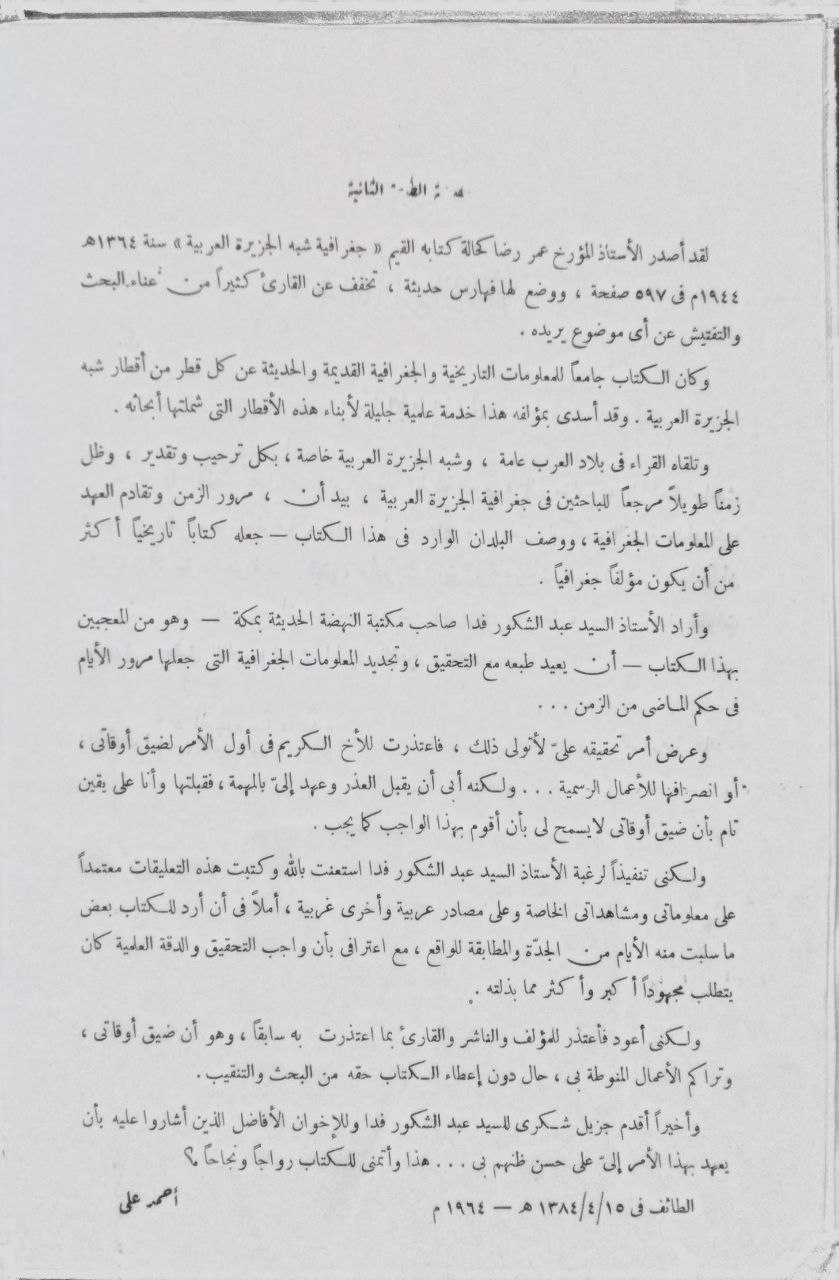 الثانية
لقد أصدر الأستاذ المؤرخ عمر رضا كحالة كتابه القيم « جغرافية شبه الجزيرة العربية » سنة ١٣٦٤ه
١٩٤٤م فى ٥٩٧ صفحة ، ووضع لها فهارس حديثة ، تخفف عن القارئ كثيراً من عناء البحث
والتفتيش عن أى موضوع يريده .
وكان الكتاب جامعاً للمعلومات التاريخية والجغرافية القديمة والحديثة عن كل قطر من أقطار شبه
الجزيرة العربية . وقد أسدى بمؤلفه هذا خدمة علمية جليلة لأبناء هذه الأقطار التى شملتها أبحاثه .
وتلقاه القراء فى بلاد العرب عامة ، وشبه الجزيرة العربية خاصة ، بكل ترحيب وتقدير ، وظل
زمناً طويلاً مرجعاً للباحثين فى جغرافية الجزيرة العربية ، بيد أن ، مرور الزمن وتقادم العهد
على المعلومات الجغرافية ، ووصف البلدان الوارد فى هذا الكتاب — جعله كتاباً تاريخياً أكثر
من أن يكون مؤلفاً جغرافياً .
وأراد الأستاذ السيد عبد الشكور فدا صاحب مكتبة النهضة الحديثة بمكة — وهو من المعجبين
بهذا الكتاب — أن يعيد طبعه مع التحقيق ، وتجديد المعلومات الجغرافية التى جعلها مرور الأيام
فى حكم الماضى من الزمن ...
وعرض أمر تحقيقه علىّ لأتولى ذلك ، فاعتذرت للأخ الكريم فى أول الأمر لضيق أوقاتى ،
أو انصرافها للأعمال الرسمية ... ولكنه أبى أن يقبل العذر وعهد إلىّ بالمهمة ، فقبلتها وأنا على يقين
تام بأن ضيق أوقاتى لايسمح لى بأن أقوم بهذا الواجب كما يجب .
ولكنى تنفيذاً لرغبة الأستاذ السيد عبد الشكور فدا استعنت بالله وكتبت هذه التعليقات معتمداً
على معلوماتى ومشاهداتى الخاصة وعلى مصادر عربية وأخرى غربية ، أملاً فى أن أرد للكتاب بعض
ما سلبت منه الأيام من الجدّة والمطابقة للواقع ، مع اعترافى بأن واجب التحقيق والدقة العلمية كان
يتطلب مجهوداً أكبر وأكثر مما بذلته .
ولكنى أعود فأعتذر للمؤلف والناشر والقارئ بما اعتذرت به سابقاً ، وهو أن ضيق أوقاتى ،
وتراكم الأعمال المنوطة بى ، حال دون إعطاء الكتاب حقه من البحث والتنقيب .
وأخيراً أقدم جزيل شكرى للسيد عبد الشكور فدا وللإخوان الأفاضل الذين أشاروا عليه بأن
يعهد بهذا الأمر إلىّ على حسن ظنهم بى ... هذا وأتمنى للكتاب رواجاً ونجاحاً
الطائف فى ١٣٨٤/٤/١٥ ه — ١٩٦٤ م
أحمد على